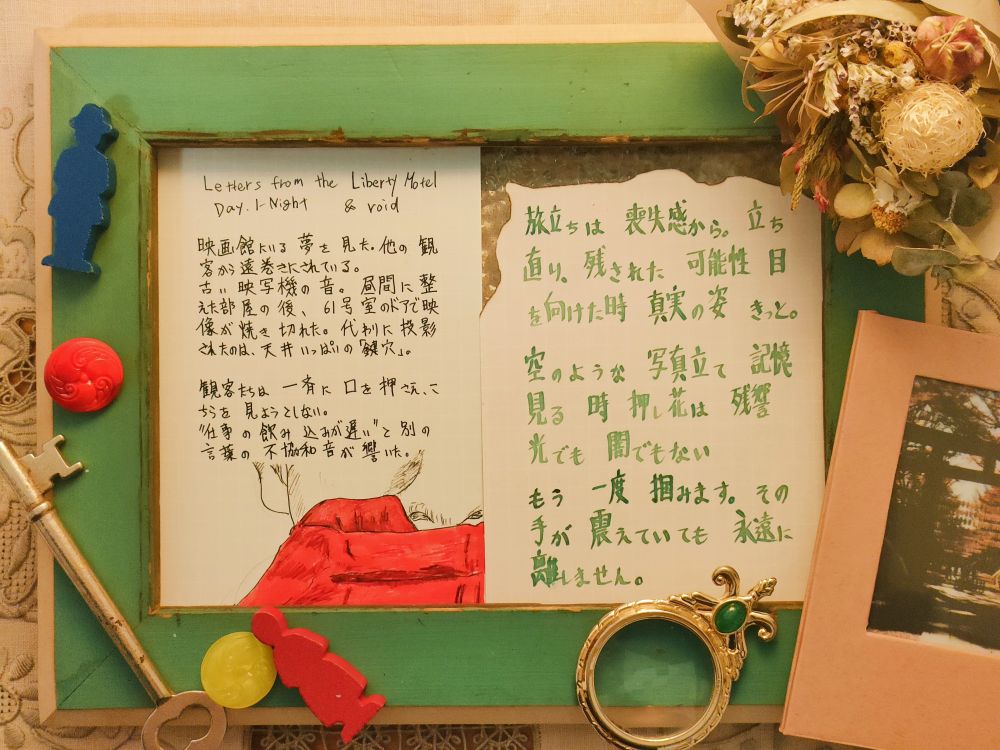 Letters from the Liberty Motel
Day.1-Night & roid
映画館にいる 夢を見た。他の 観
客から遠巻きにされている。
古い 映写機の音。昼間に整
えた部屋の後、61号室のドアで映
像が焼き切れた。代わりに投影
されたのは、天井いっぱいの「鍵穴」。
観客たちは 一斉に 口を押さえ、こ
ちらを見ようとしない。
"仕事の飲み込みが遅い"と別の
言葉の不協和音が響いた。
旅立ちは 喪失感から。立ち
直り、残された 可能性 目
を向けた時 真実の姿 きっと。
空のような 写真立て 記憶
見る 時 押し花は 残響
光でも 闇でもない
もう 一度 掴みます。その
手が 震えていても 永遠に
離しません。